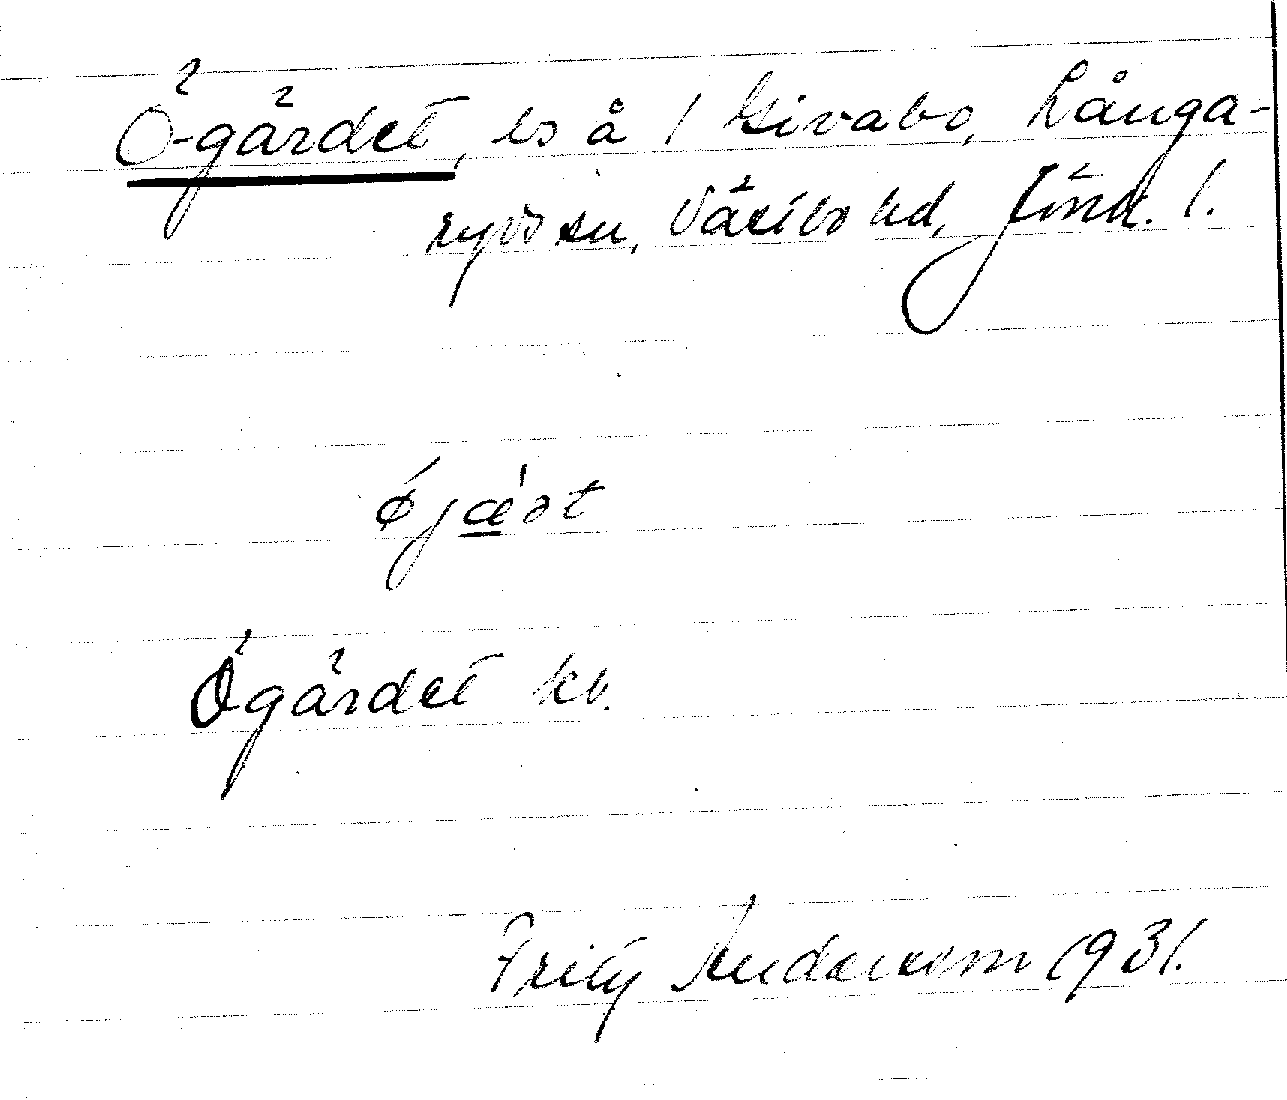 Ögärdet, ls å 1 Givabo, Långa-
ryds sn, Västbo hd, Jönk. l.
ǿjæ̲̍ət
Ögärdet kb.
Fritz Anderson 1931.